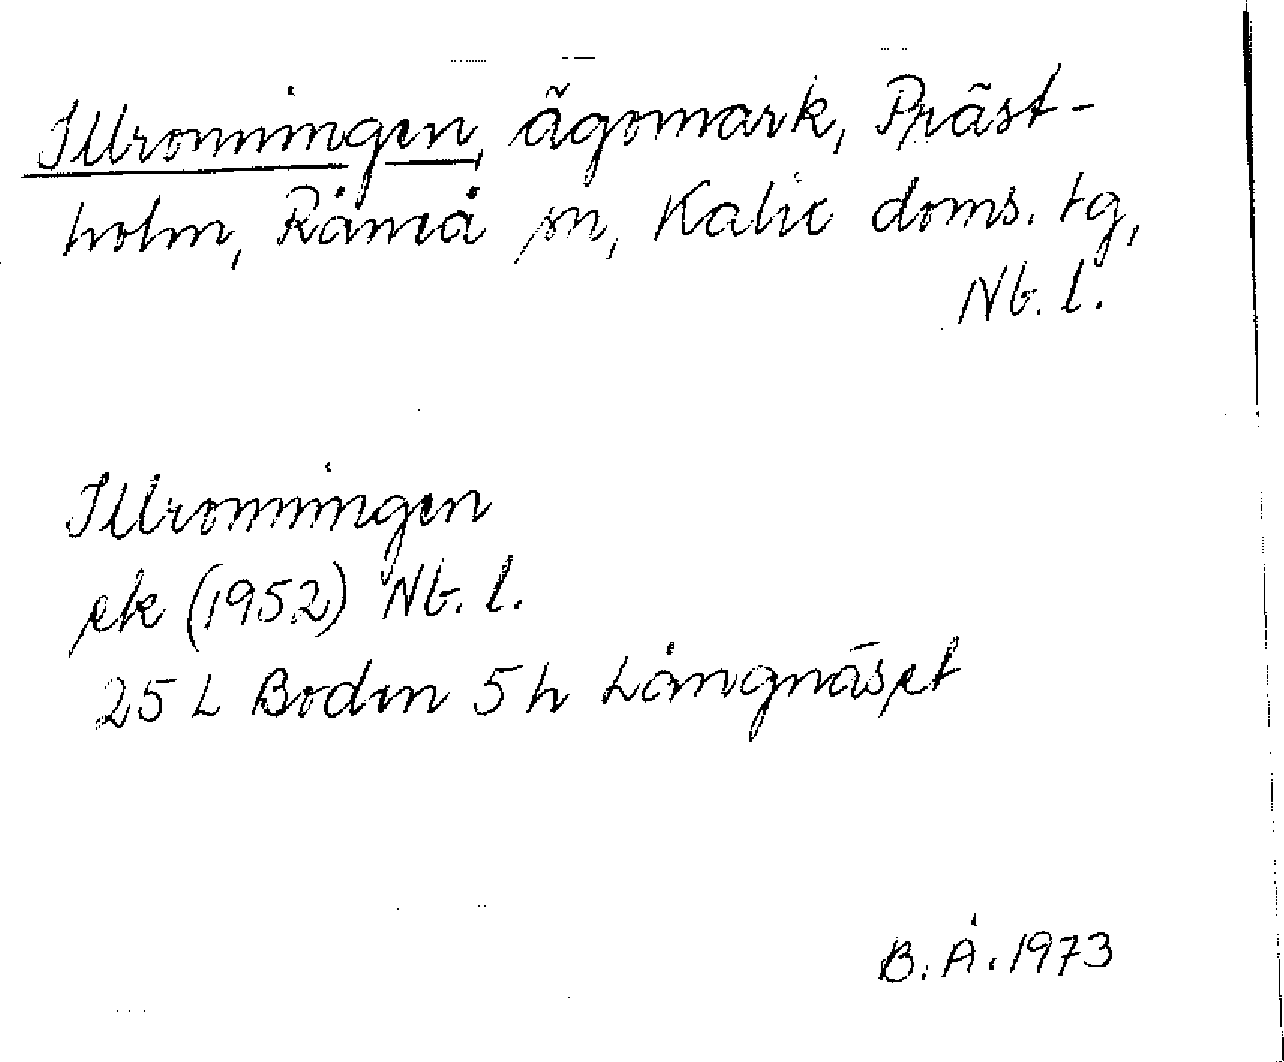 Illronningen, ägomark, Präst-
holm, Råneå sn, Kalix doms. tg,
Nb. l.
Illronningen
ek (1952) Nb. l.
25 L Boden 5 h Långnäset
B. Å. 1973